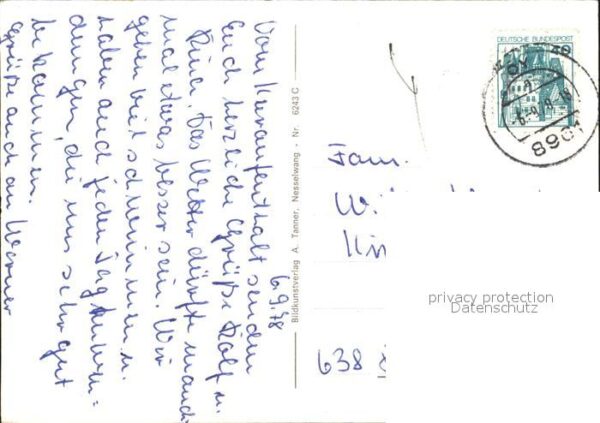 6.9.78
Vom Kuraufenthalt senden
Euch herzliche Grüße Rolf u.
Rina. Das Wetter dürfte manch
mal etwas besser sein. Wir
gehen viel schwimmen u.
haben auch jeden Tag
die uns sehr gut
bekommen.
Grüße auch an Werner
Bildkunstverlag A. Tanner, Nesselwang - Nr. 6243 C
DEUTSCHE BUNDESPOST
8961
Fam.
638
privacy protection
Datenschutz